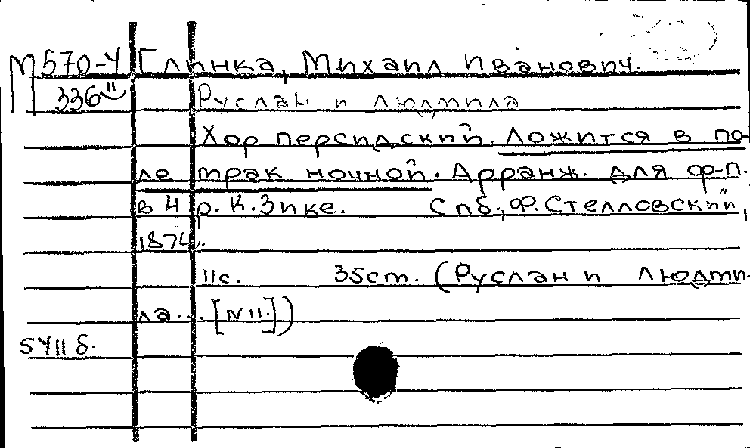 М 570-4 Глинка, Михаил Иванович.
336 Руслан и Людмила
Хор персидский. Ложится в по-
ле мрак ночной. Арранж. для ф-п.
в 4 р. К. Зике. Спб., Ф. Стелловский,
187
11с. 35cm. (Руслан и Людми-
ла... [N11.])
5711б.